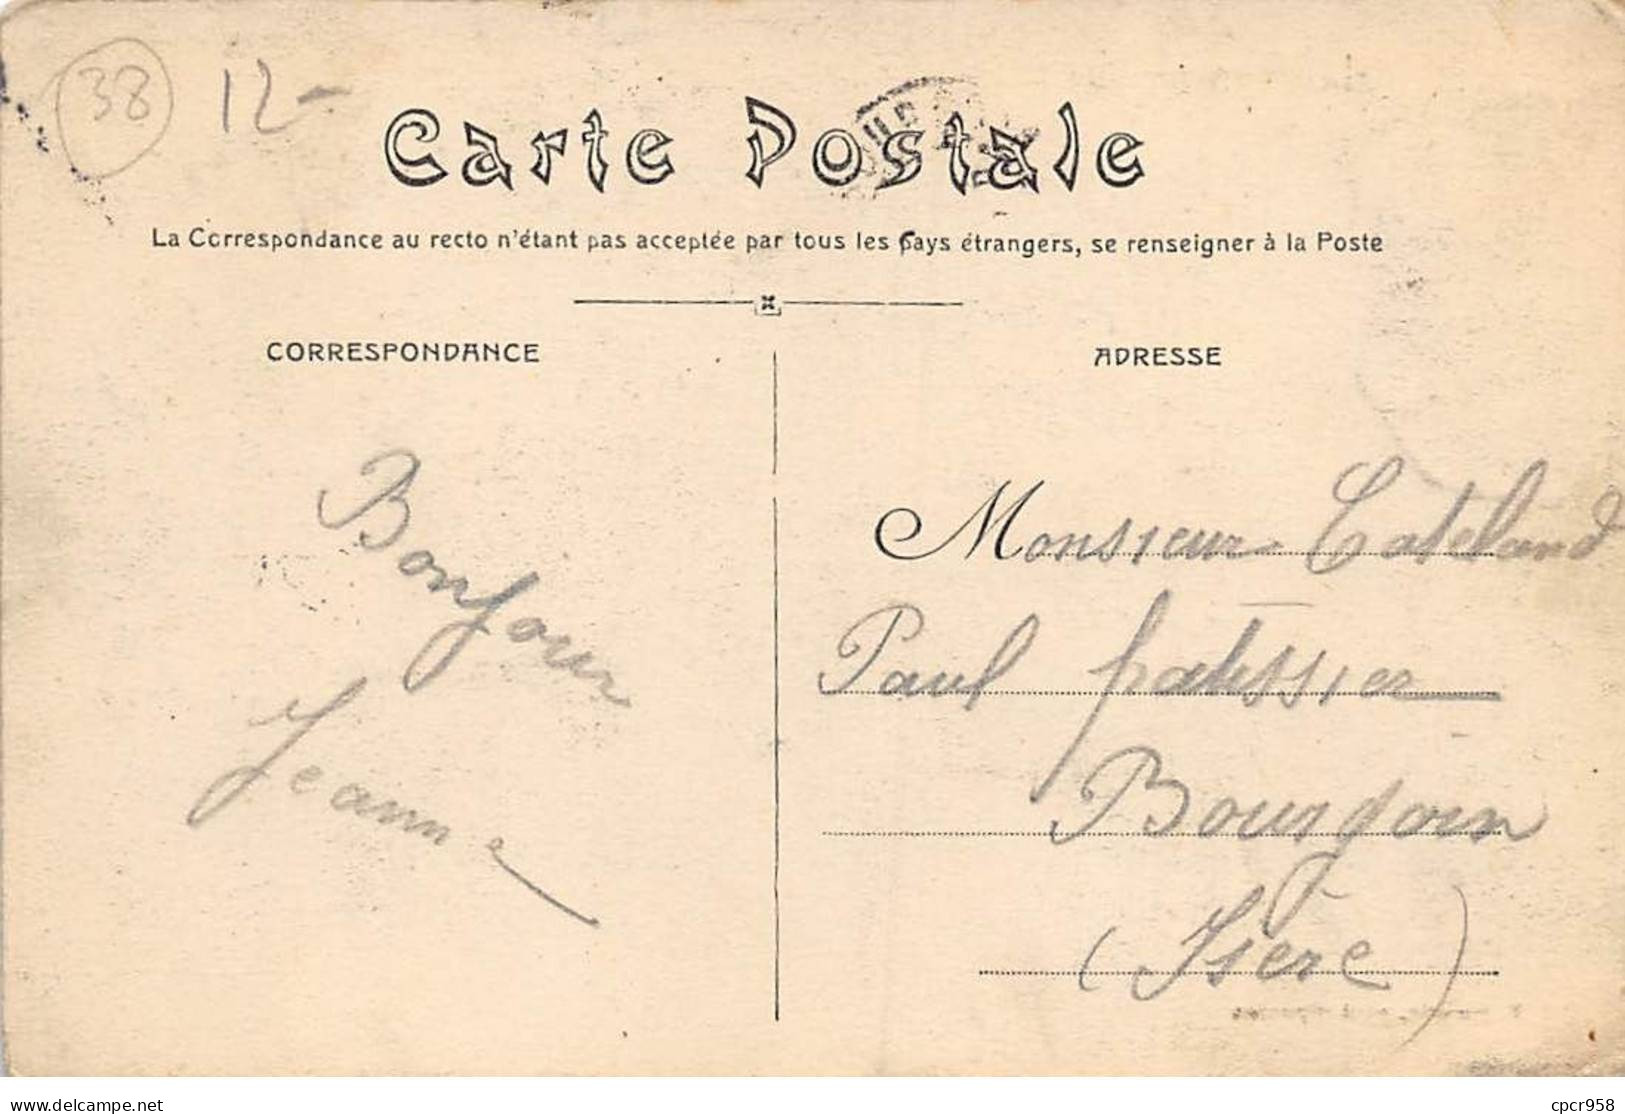 38 12-
Carte Postale
La Correspondance au recto n'étant pas acceptée par tous les pays étrangers, se renseigner à la Poste
CORRESPONDANCE
Bonjour
Jeanne
ADRESSE
Monsieur Cateland
Paul patissier
Bourgoin
(Isère)
delcampe.net
cpcr958